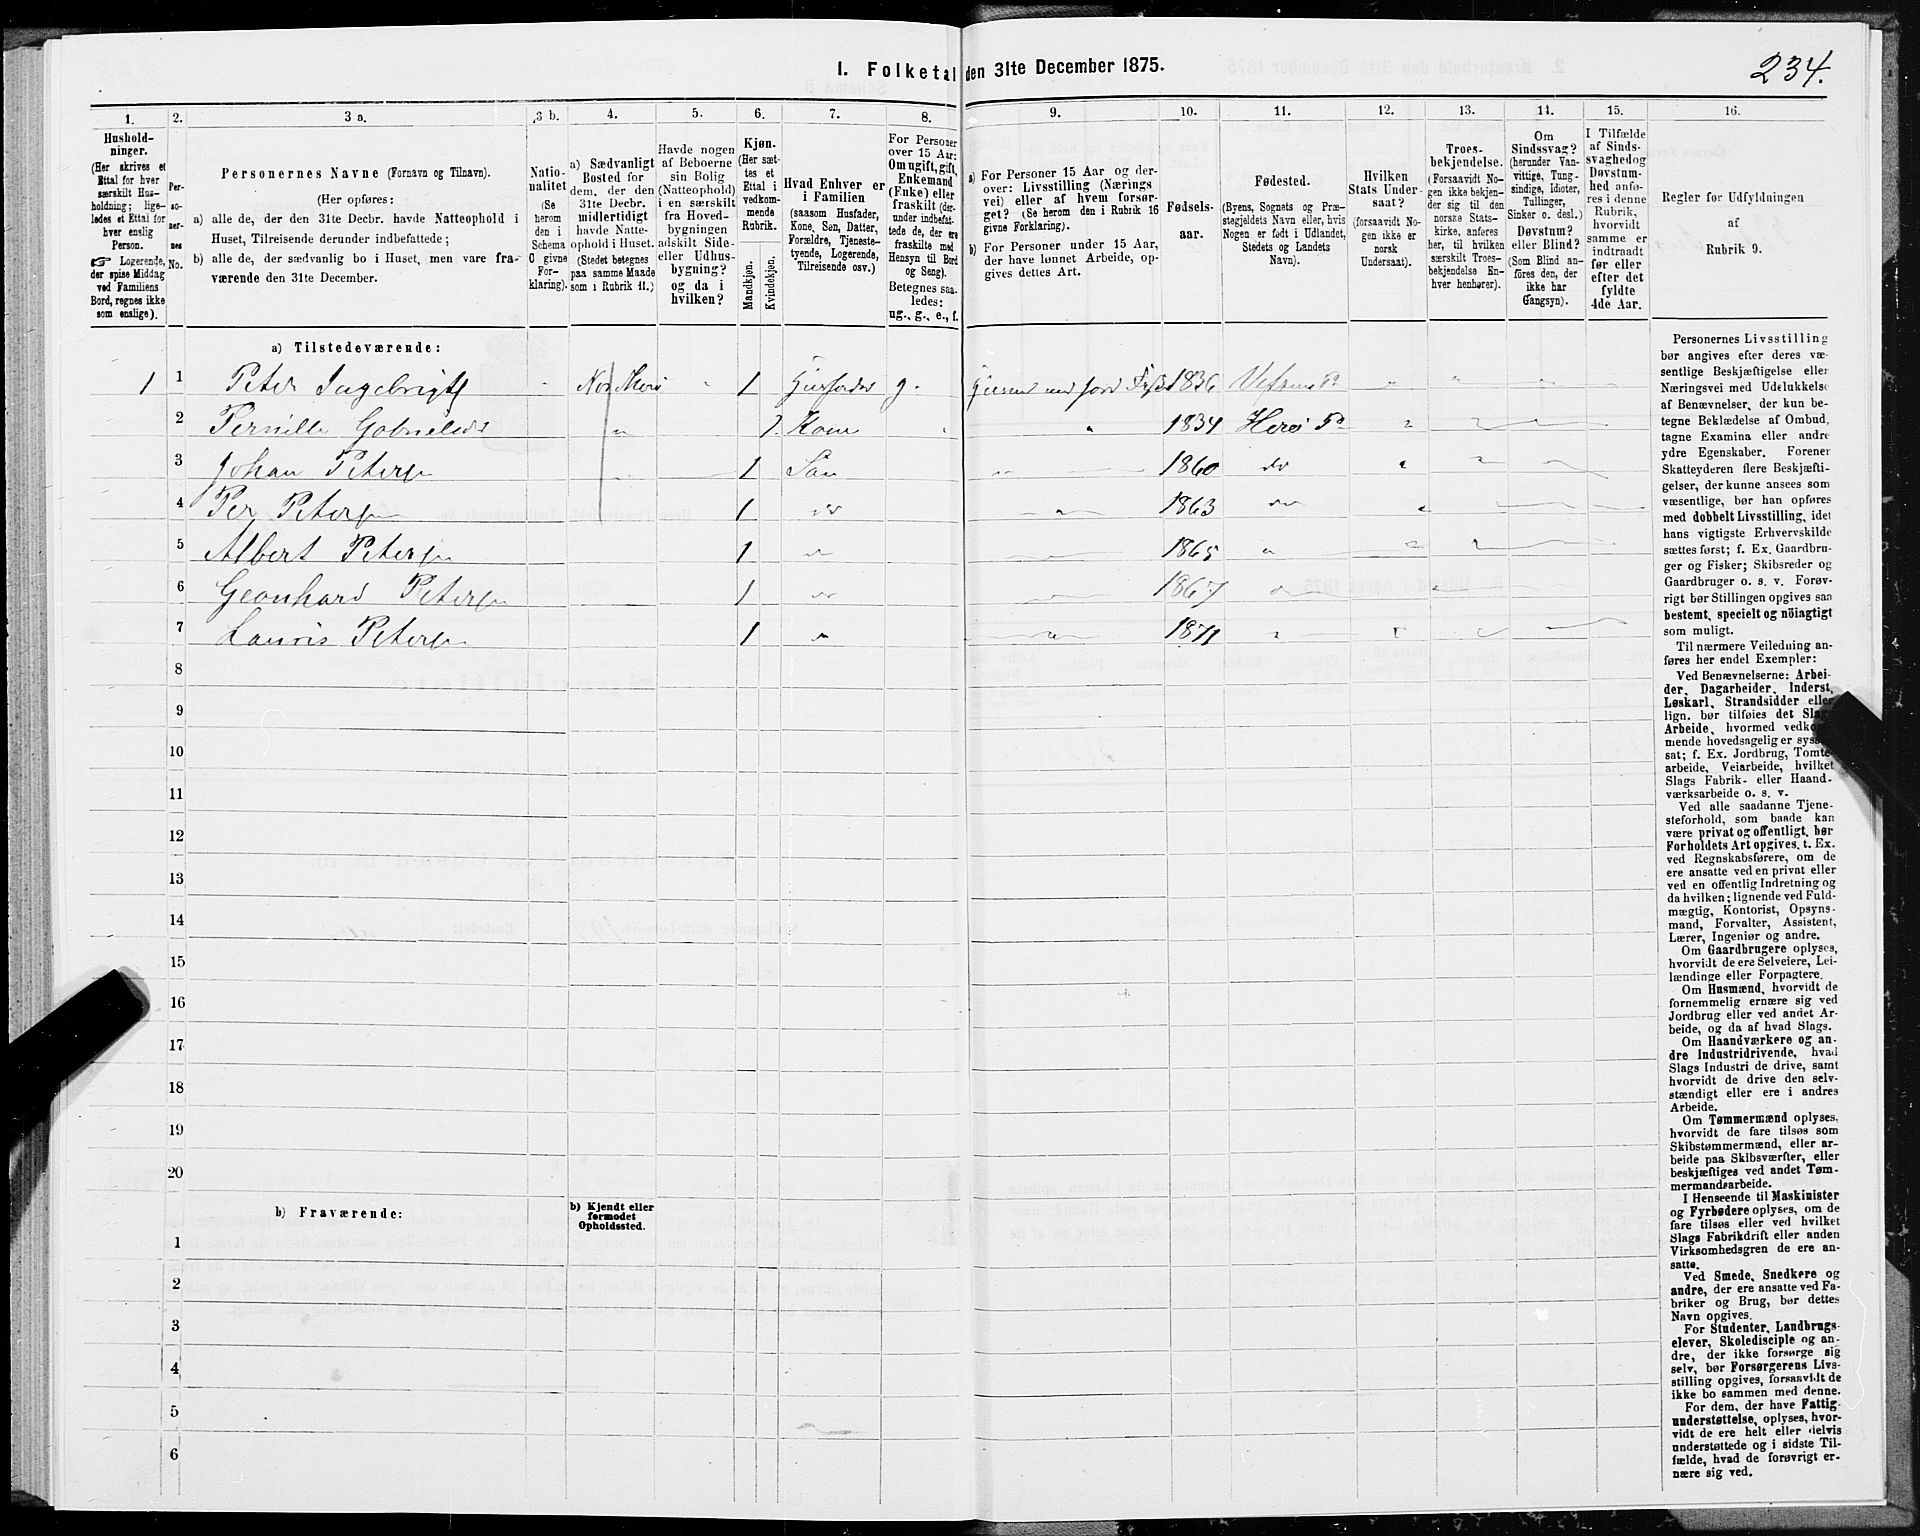 234.
I. Folketal den 31te December 1875.
1. 2. 3 a. 3 b. 4. 5. 6. 7. 8. 9. 10. 11. 12. 13. 14. 15. 16.
Hushold-
ninger.
(Her skrives et
Ettal for hver
særskilt Hus-
holdning; lige-
ledes et Ettal for
hver enslig
Person.
☞ Logerende,
der spise Middag
ved Familiens
Bord, regnes ikke
som enslige).
Per-
so-
ner-
nes
No.
Personernes Navne (Fornavn og Tilnavn).
(Her opføres:
a) alle de, der den 31te Decbr. havde Natteophold i
Huset, Tilreisende derunder indbefattede;
b) alle de, der sædvanlig bo i Huset, men vare fra-
værende den 31te December.
Natio-
nalitet
(Se
herom
den i
Schema
C givne
For-
klaring).
a) Sædvanligt
Bosted for
dem, der den
31te Decbr.
midlertidigt
havde Natte-
ophold i Huset.
(Stedet betegnes
paa samme Maade
som i Rubrik 11.)
Havde nogen
af Beboerne
sin Bolig
(Natteophold)
i en særskilt
fra Hoved-
bygningen
adskilt Side-
eller Udhus-
bygning?
og da i
hvilken?
Kjøn.
(Her sæt-
tes et
Ettal i
vedkom-
mende
Rubrik.
Mandkjøn.
Kvindekjøn.
Hvad Enhver er
i Familien
(saasom Husfader,
Kone, Søn, Datter,
Forældre, Tjeneste-
tyende, Logerende,
Tilreisende osv.)
For Personer
over 15 Aar:
Om ugift, gift,
Enkemand
(Enke) eller
fraskilt (der-
under indbefat-
tede de, der ere
fraskilte med
Hensyn til Bord
og Seng).
Betegnes saa-
ledes:
ug., g., e., f.
a) For Personer 15 Aar og der-
over: Livsstilling (Nærings
vei) eller af hvem forsør-
get? (Se herom den i Rubrik 16
givne Forklaring).
b) For Personer under 15 Aar,
der have lønnet Arbeide, op-
gives dettes Art.
Fødsels-
aar.
Fødested.
(Byens, Sognets og Præ-
stegjeldets Navn eller, hvis
Nogen er født i Udlandet,
Stedets og Landets
Navn).
Hvilken
Stats Under-
saat?
(forsaavidt No-
gen ikke er
norsk
Undersaat).
Troes-
bekjendelse.
(Forsaavidt No-
gen ikke bekjen-
der sig til den
norske Stats-
kirke, anføres
her, til hvilken
særskilt Troes-
bekjendelse En-
hver henhører).
Om
Sindssvag?
(herunder Van-
vittige, Tung-
sindige, Idioter,
Tullinger,
Sinker o. desl.)
Døvstum?
eller Blind?
(Som Blind an-
føres den, der
ikke har
Gangsyn).
I Tilfælde
af Sinds-
svaghed og
Døvstum-
hed anfø-
res i denne
Rubrik,
hvorvidt
samme er
indtraadt
før eller
efter det
fyldte
4de Aar.
Regler for Udfyldningen
af
Rubrik 9.
a) Tilstedeværende:
1 1 Peter Ingebrigts 1 g. 1836 Vefsens Pr
2 Pernille Gabrielsdr 1 Kone 1834 Herø Pr
3 Johan Petersen 1 Søn 1860 do
4 Per Petersen 1 do 1863 do
5 Albert Petersen 1 1865
6 Geonhard Petersen 1 1867
7 Lauris Petersen 1 1871
8
9
10
11
12
13
14
15
16
17
18
19
20
b) Fraværende:
b) Kjendt eller
formodet
Opholdssted.
1
2
3
4
5
6
Personernes Livsstilling
bør angives efter deres væ-
sentlige Beskjæftigelse eller
Næringsvei med Udelukkelse
af Benævnelser, der kun be-
tegne Beklædelse af Ombud,
tagne Examina eller andre
ydre Egenskaber. Forener
Skatteyderen flere Beskjæfti-
gelser, der kunne ansees som
væsentlige, bør han opføres
med dobbelt Livsstilling, idet
hans vigtigste Erhvervskilde
sættes først; f. Ex. Gaardbru-
ger og Fisker; Skibsreder og
Gaardbruger o. s. v. Forøv-
rigt bør Stillingen opgives saa
bestemt, specielt og nøiagtigt
som muligt.
Til nærmere Veiledning an-
føres her endel Exempler:
Ved Benævnelserne: Arbei-
der, Dagarbeider, Inderst,
Løskarl, Strandsidder eller
lign. bør tilføies det Slags
Arbeide, hvormed vedkom-
mende hovedsagelig er syssel-
sat; f. Ex. Jordbrug, Tomte-
arbeide, Veiarbeide, hvilket
Slags Fabrik- eller Haand-
værksarbeide o. s. v.
Ved alle saadanne Tjene-
steforhold, som baade kan
være privat og offentligt, bør
Forholdets Art opgives, t. Ex.
ved Regnskabsførere, om de
ere ansatte ved en privat eller
ved en offentlig Indretning og
da hvilken; lignende ved Fuld-
mægtig, Kontorist, Opsyns-
mand, Forvalter, Assistent,
Lærer, Ingeniør og andre.
Om Gaardbrugere oplyses,
hvorvidt de ere Selveiere, Lei-
lændinge eller Forpagtere.
Om Husmænd, hvorvidt de
fornemmelig ernære sig ved
Jordbrug eller ved andet Ar-
beide, og da af hvad Slags.
Om Haandværkere og an-
dre Industridrivende, hvad
Slags Industri de drive, samt
hvorvidt de drive den selv-
stændigt eller ere i andres
Arbeide.
Om Tømmermænd oplyses,
hvorvidt de fare tilsøs som
Skibstømmermænd, eller ar-
beide paa Skibsværfter, eller
beskjæftiges ved andet Tøm-
mermandsarbeide.
I Henseende til Maskinister
og Fyrbødere oplyses, om de
fare tilsøs eller ved hvilket
Slags Fabrikdrift eller anden
Virksomhedsgren de ere an-
satte.
Ved Smede, Snedkere og
andre, der ere ansatte ved Fa-
briker og Brug, bør dettes
Navn opgives.
For Studenter, Landbrugs-
elever, Skoledisciple og an-
dre, der ikke forsørge sig
selv, bør Forsørgerens Livs-
stilling opgives, forsaavidt de
ikke bo sammen med denne.
For dem, der have Fattig-
understøttelse, oplyses, hvor-
vidt de ere helt eller delvis
understøttede og i sidste Til-
fælde, hvad de forøvrigt er-
nære sig ved.